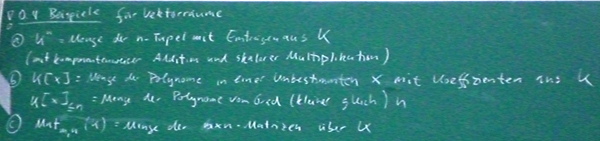 Beispiele für Vektorräume
a) Kⁿ = Menge der n-Tupel mit Einträgen aus K
(mit komponentenweiser Addition und skalarer Multiplikation)
b) K[x] = Menge der Polynome in einer Unbestimmten x mit Koeffizienten aus K
K[x]≤n = Menge der Polynome vom Grad (kleiner gleich) n
c) Mat_{m,n}(K) = Menge der m×n-Matrizen über K